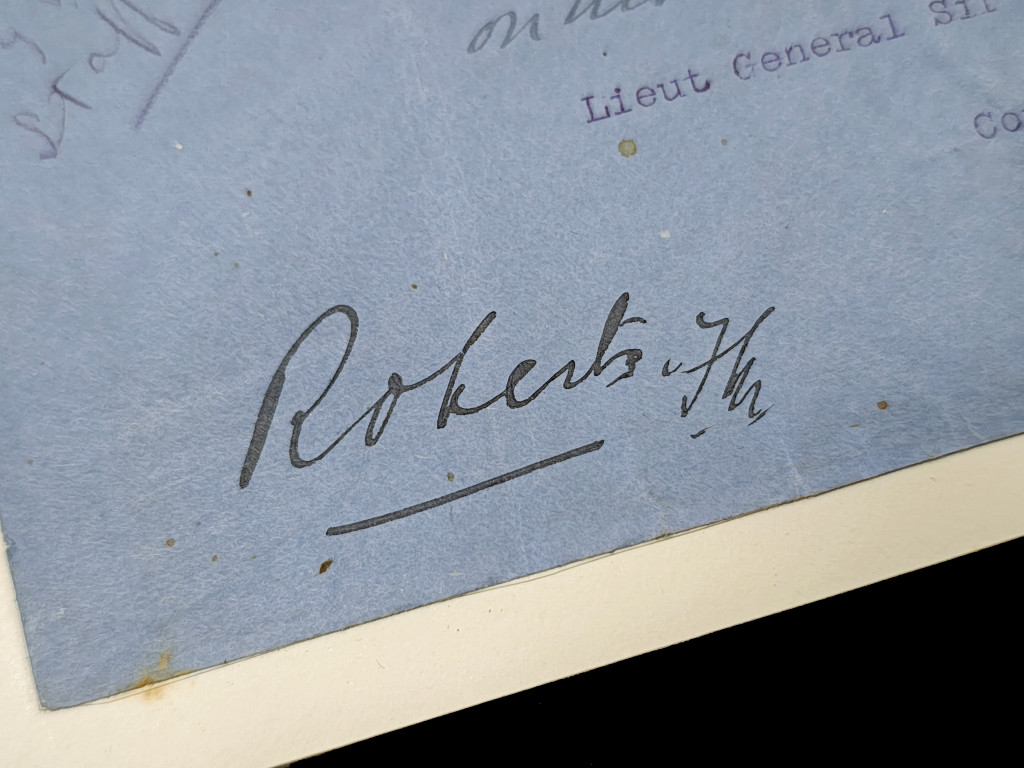 Staff
on
Lieut General Sir
Co
Roberts. FM